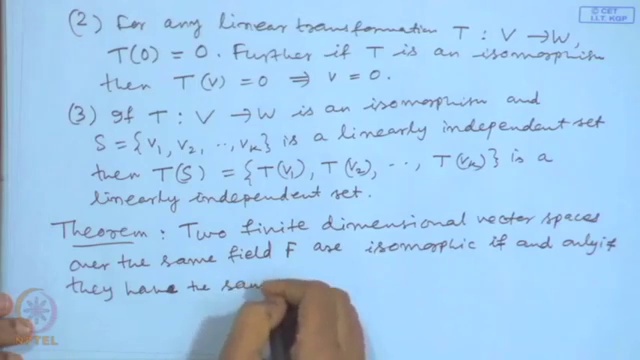 © CET
I.I.T. KGP
(2) For any linear transformation T : V → W,
T(0) = 0. Further if T is an isomorphism
then T(v) = 0 ⇒ v = 0.
(3) If T : V → W is an isomorphism and
S = {v₁, v₂, .., vₖ} is a linearly independent set
then T(S) = {T(v₁), T(v₂), .., T(vₖ)} is a
linearly independent set.
Theorem : Two finite dimensional vector spaces
over the same field F are isomorphic if and only if
they have the sam
NPTEL